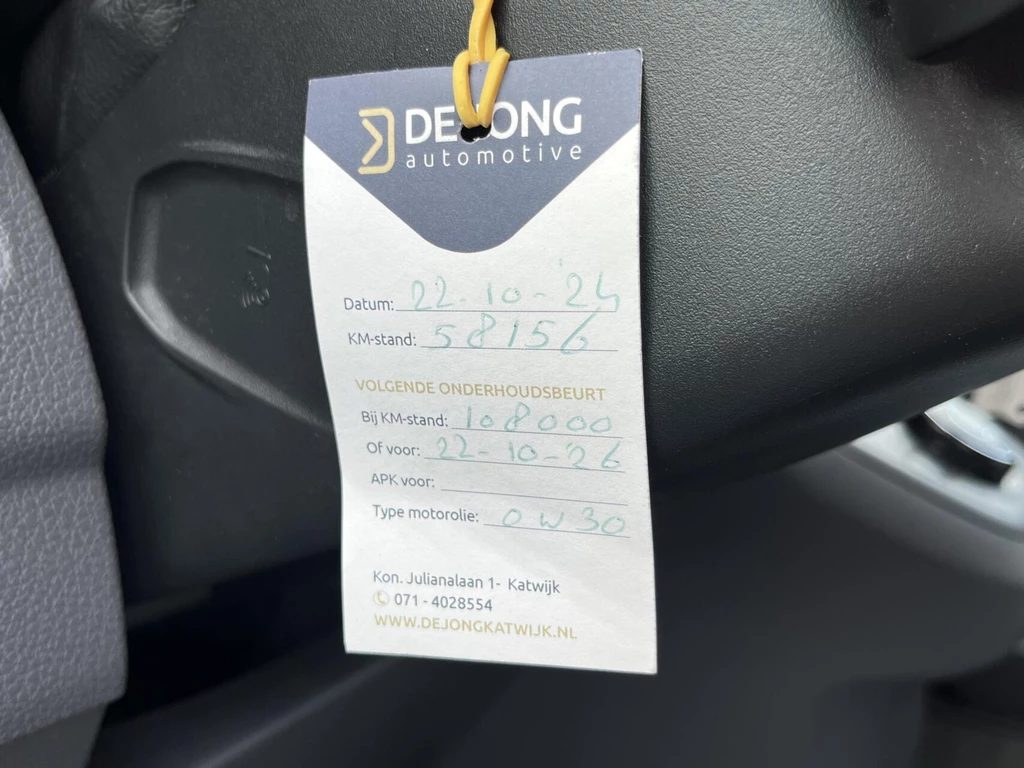 DEJONG
automotive
Datum: 22-10-24
KM-stand: 58156
VOLGENDE ONDERHOUDSBEURT
Bij KM-stand: 108000
Of voor: 22-10-'26
APK voor:
Type motorolie: 0W30
Kon. Julianalaan 1- Katwijk
071 - 4028554
WWW.DEJONGKATWIJK.NL